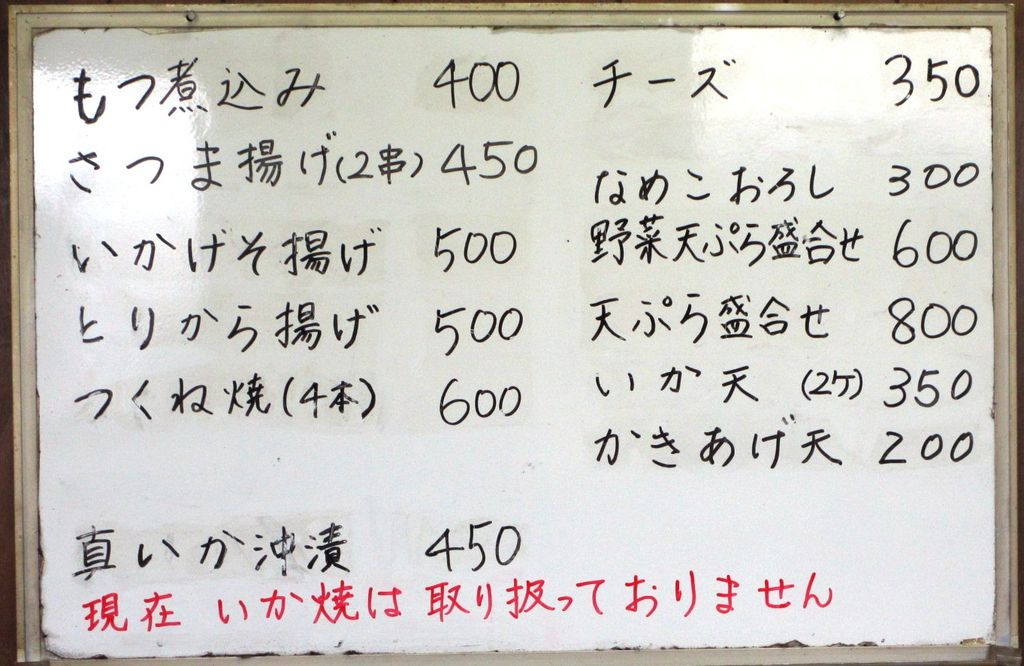 もつ煮込み 400
さつま揚げ(2串) 450
いかげそ揚げ 500
とりから揚げ 500
つくね焼(4本) 600
真いか沖漬 450
チーズ 350
なめこおろし 300
野菜天ぷら盛合せ 600
天ぷら盛合せ 800
いか天 (2ケ) 350
かきあげ天 200
現在 いか焼は 取り扱っておりません